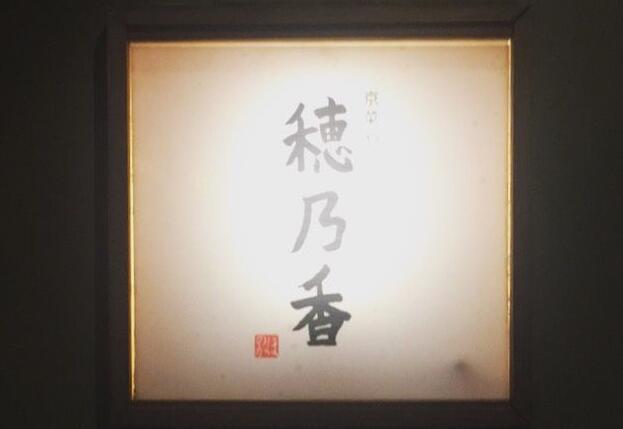 京菜
穂乃香